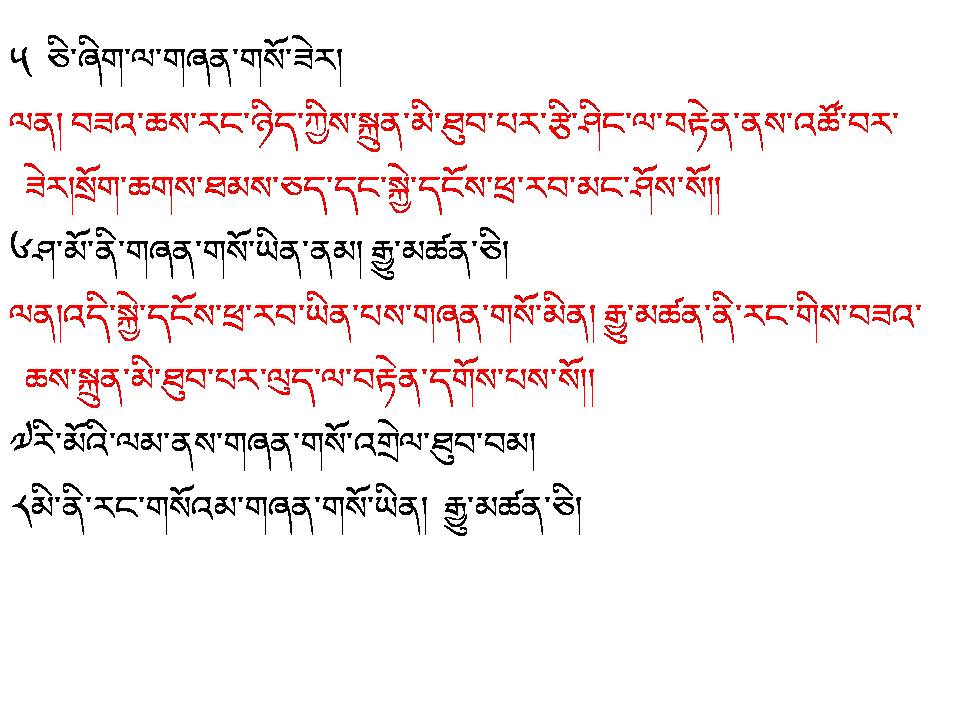 ༥ ཅི་ཞིག་ལ་གཞན་གསོ་ཟེར།
ལན། བཟའ་ཆས་རང་ཉིད་ཀྱིས་སྐྲུན་མི་ཐུབ་པར་རྩི་ཤིང་ལ་བརྟེན་ནས་འཚོ་བར་
ཟེར།སྲོག་ཆགས་ཐམས་ཅད་དང་སྐྱེ་དངོས་ཕྲ་རབ་མང་ཤོས་སོ།།
༦ཤ་མོ་ནི་གཞན་གསོ་ཡིན་ནམ། རྒྱུ་མཚན་ཅི།
ལན།འདི་སྐྱེ་དངོས་ཕྲ་རབ་ཡིན་པས་གཞན་གསོ་མིན། རྒྱུ་མཚན་ནི་རང་གིས་བཟའ་
ཆས་སྐྲུན་མི་ཐུབ་པར་ལུད་ལ་བརྟེན་དགོས་པས་སོ།།
༧རི་མོའི་ལམ་ནས་གཞན་གསོ་འགྲེལ་ཐུབ་བམ།
༨མི་ནི་རང་གསོའམ་གཞན་གསོ་ཡིན། རྒྱུ་མཚན་ཅི།